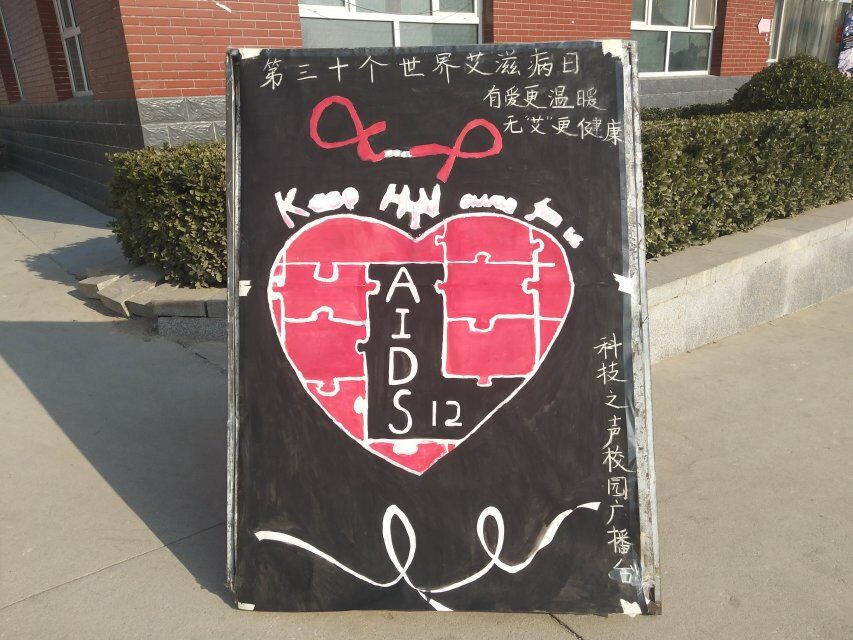 第三十个世界艾滋病日
有爱更温暖
无"艾"更健康
Keep
AIDS
12
科技之声校园广播台